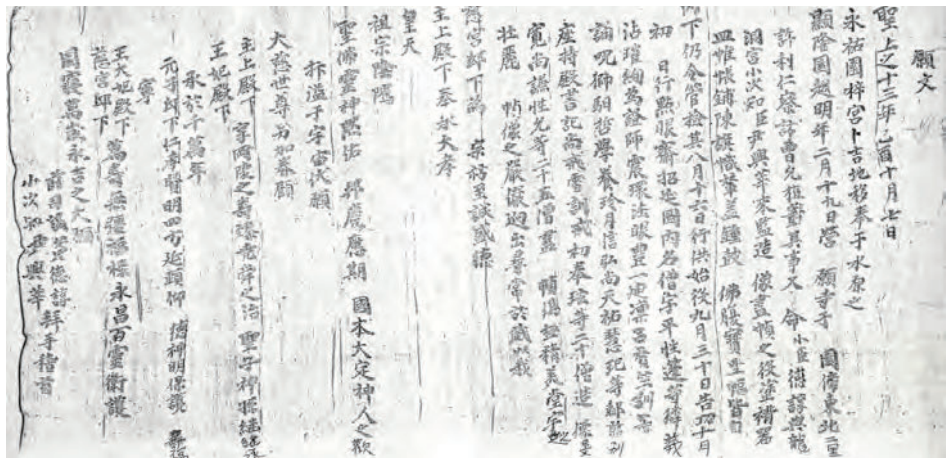 願文
聖上之十三年己酉十月七日
永祐園梓宮卜吉地移奉于水原之
顯隆園越明年二月十九日營 願寺于 園傍東北二里
許利仁察訪曹允植董其事又 命小臣德諄與龍
洞宮小次知臣尹興莘來監造 像畫幀之役塗褙器
皿帷帳鋪陳旗幟華盖鍾鼓 佛 皆自
內下仍令管檢其八月十六日行供始役九月三十日告功十月
初 日行點眼齋招延國內名僧字平性逢等待
沾璀絢爲證師震環法眼豊一廸澟呂賛宏訓等
誦呪獅馹哲學養玲月信弘尚天祐慧玘等
座持殿書記尚戒雪訓戒初奉玹等二十僧造 像旻
寬尚謙性允等二十五僧畫 幀 極精美堂宇之
壯麗 幀像之嚴儼迥出尋常於戲我
慈宮邸下爲 宗祊至誠感德
主上殿下基於大孝
皇天
祖宗陰隲
聖佛靈神黙佑 邦慶應期 國本大定神人之歡
抃溢于宇宙伏願
大慈世尊另加眷顧
主上殿下 享岡陵之壽 堯舜之治 聖子神孫繼繼
王妃殿下
承於千萬年
元子邸下仁孝聰明四方延頸仰 神明保護
寧
王大妃殿下萬壽無疆福祿永昌百靈衛護
慈宮邸下
國 萬歲永吉之大願
德諄拜手稽首
小次知尹興莘